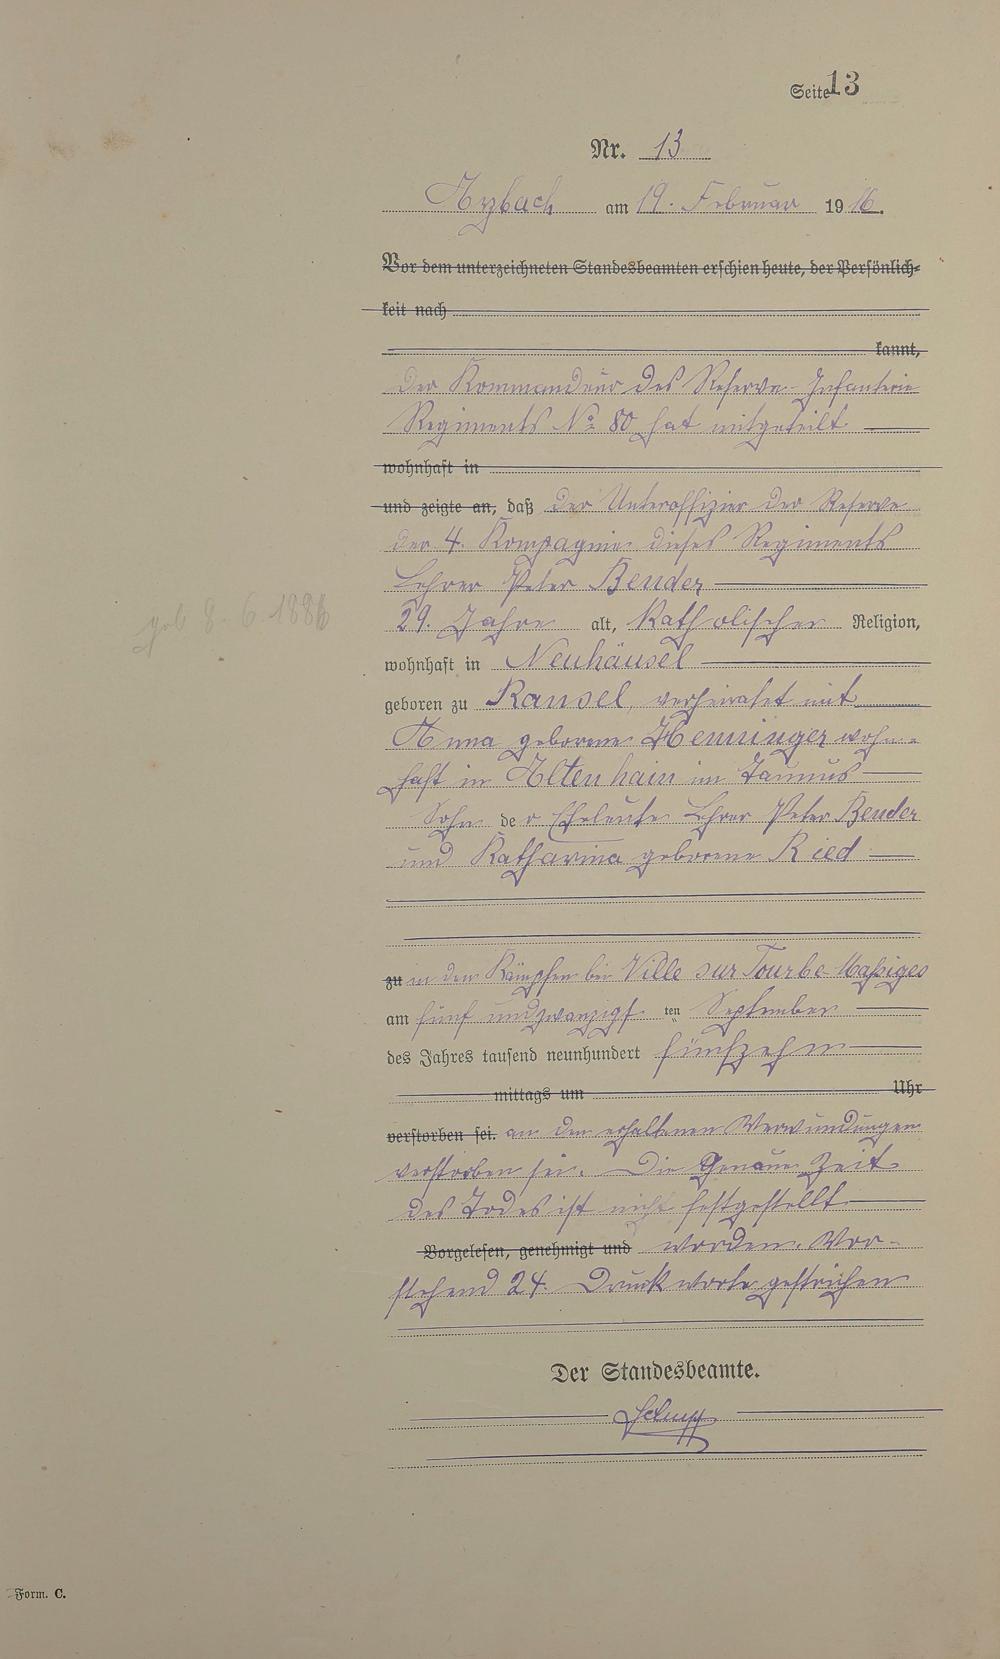 Seite 13
Nr. 13
Arzbach am 19. Februar 1916.
Vor dem unterzeichneten Standesbeamten erschien heute, der Persönlich-
keit nach
kannt,
Der Kommandeur des Reserve-Infanterie
Regiments No 80 hat mitgeteilt
wohnhaft in
und zeigte an, daß der Unteroffizier der Reserve
der 4. Kompagnie dieses Regiments
Lehrer Peter Bender
geb 8. 6. 1886
29. Jahre alt, katholischer Religion,
wohnhaft in Neuhäusel
geboren zu Ransel, verheiratet mit
Anna geborene Henninger wohn-
haft in Altenhain im Taunus
Sohn der Eheleute Lehrer Peter Bender
und Katharina geborene Ried
zu in den Kämpfen bei Ville sur Tourbe-Maßiges
am fünf und zwanzigsten September
des Jahres tausend neunhundert fünfzehn
mittags um Uhr
verstorben sei. an den erhaltenen Verwundungen
verstorben sei. Die genaue Zeit
des Todes ist nicht festgestellt
Vorgelesen, genehmigt und worden. Vor-
stehend 24. Druckworte gestrichen
Der Standesbeamte.
Form. C.